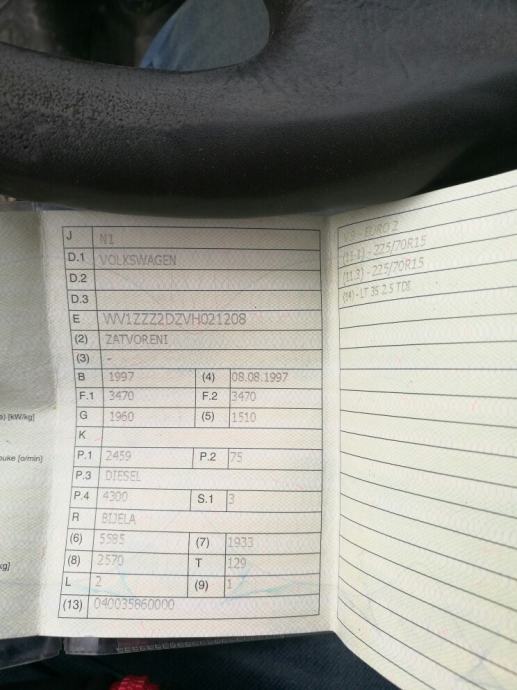 J N1
D.1 VOLKSWAGEN
D.2
D.3
E WV1ZZZ2DZVH021208
(2) ZATVORENI
(3) -
B 1997 (4) 08.08.1997
F.1 3470 F.2 3470
G 1960 (5) 1510
K
P.1 2459 P.2 75
P.3 DIESEL
P.4 4300 S.1 3
R BIJELA
(6) 5585 (7) 1933
(8) 2570 T 129
L 2 (9) 1
(13) 040035860000
V.9 - EURO 2
(11.1) - 225/70R15
(11.3) - 225/70R15
(14) - LT 35 2.5 TDI
[kW/kg]
[o/min]
kg]